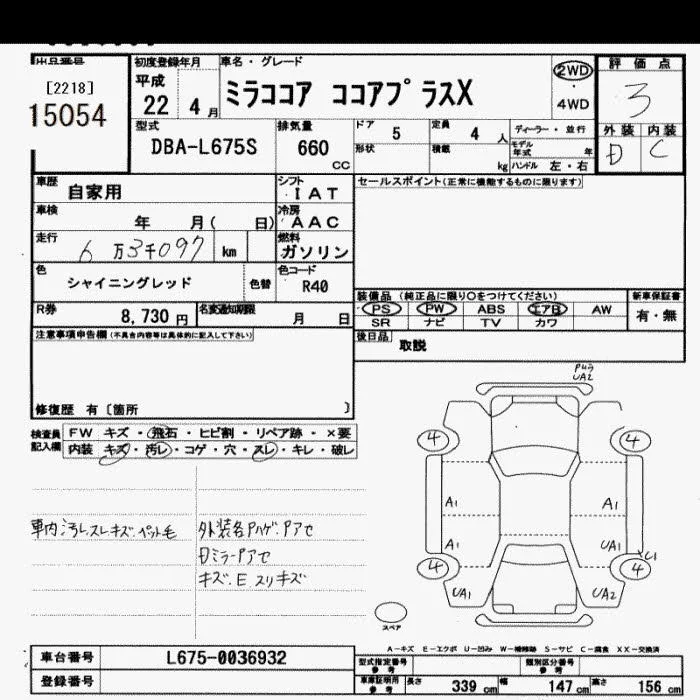 出品番号
[2218]
15054
初度登録年月
平成
22年 4月
車名・グレード
ミラココア ココアプラスX
2WD
4WD
評価点
3
外装 内装
D C
型式
DBA-L675S
排気量
660 CC
ドア 5
形状
定員 4 人
積載 kg
ディーラー・並行
モデル年式 年
ハンドル 左・右
車歴
自家用
シフト
IAT
車検
年 月( 日)
冷房
AAC
走行
6万3千097 km
燃料
ガソリン
色
シャイニングレッド
色替
色コード
R40
R券
8,730 円
名変通知期限
月 日
セールスポイント(正常に機能するものに限ります)
装備品 (純正品に限り〇をつけてください)
PS PW ABS エアB AW
SR ナビ TV カワ
新車保証書
有・無
後日品
取説
注意事項申告欄(不具合内容等は具体的に記入して下さい)
修復歴 有〔箇所 〕
検査員記入欄
FW キズ・飛石・ヒビ割・リペア跡・×要
内装 キズ・汚レ・コゲ・穴・スレ・キレ・破レ
車内汚レスレキズ.ペット毛
外装各Pハゲ.Pアセ
DミラーPアセ
キズ.E スリキズ
UA2
4 4
A1 A1
A1 UA1
U1
4 4
UA1 UA2
スペア
A-キズ E-エクボ U-凹み W-補修跡 S-サビ C-腐食 XX-交換済
車台番号
L675-0036932
登録番号
型式指定番号 参考
類別区分番号 参考
車庫証明用 参考
長さ 339 cm 幅 147 cm 高さ 156 cm